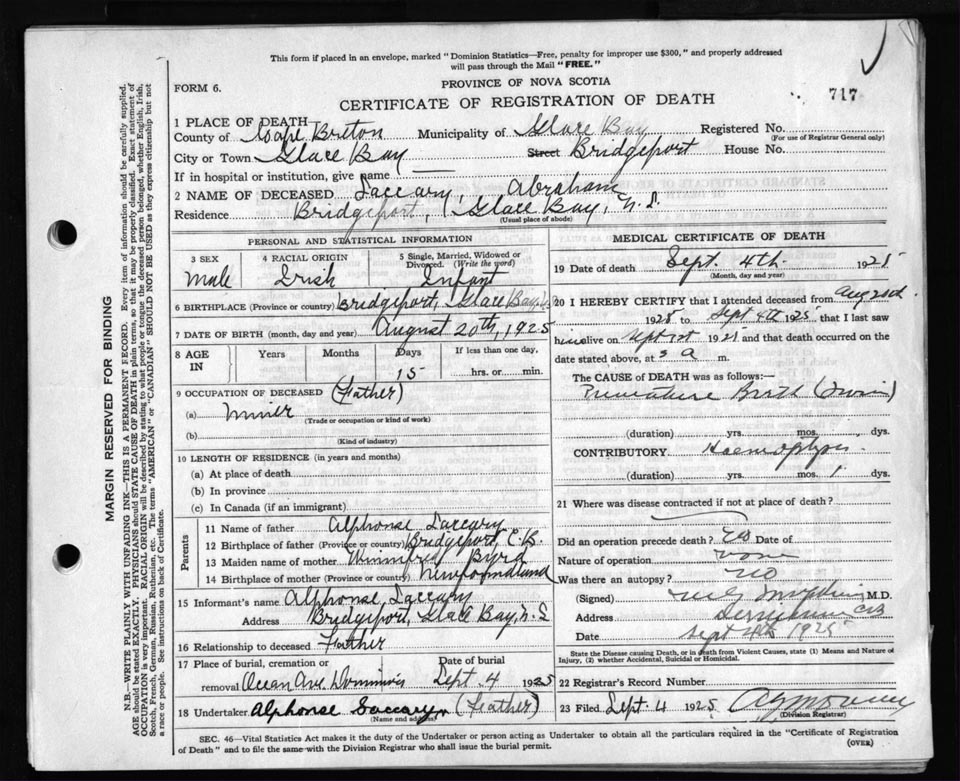 This form if placed in an envelope, marked "Dominion Statistics—Free, penalty for improper use $300," and properly addressed
will pass through the Mail "FREE."
FORM 6.
PROVINCE OF NOVA SCOTIA
717
CERTIFICATE OF REGISTRATION OF DEATH
1 PLACE OF DEATH
County of Cape Breton Municipality of Glace Bay Registered No.
(For use of Registrar General only)
City or Town Glace Bay Street Bridgeport House No.
If in hospital or institution, give name —
2 NAME OF DECEASED Laccary, Abraham
Residence Bridgeport, Glace Bay, N. S.
(Usual place of abode)
PERSONAL AND STATISTICAL INFORMATION
3 SEX 4 RACIAL ORIGIN 5 Single, Married, Widowed or
Divorced. (Write the word)
Male Irish Infant
6 BIRTHPLACE (Province or country) Bridgeport, Glace Bay,
7 DATE OF BIRTH (month, day and year) August 20th, 1925
8 AGE IN Years Months Days If less than one day,
15 hrs. or min.
9 OCCUPATION OF DECEASED (Father)
(a) Miner
(Trade or occupation or kind of work)
(b)
(Kind of industry)
10 LENGTH OF RESIDENCE (in years and months)
(a) At place of death
(b) In province
(c) In Canada (if an immigrant)
Parents
11 Name of father Alphonse Laccary
12 Birthplace of father (Province or country) Bridgeport, C.B.
13 Maiden name of mother Winnifred Byrd
14 Birthplace of mother (Province or country) Newfoundland
15 Informant's name Alphonse Laccary
Address Bridgeport, Glace Bay, N. S
16 Relationship to deceased Father
17 Place of burial, cremation or Date of burial
removal Ocean Ave Dominion Sept. 4 1925
18 Undertaker Alphonse Laccary (Father)
(Name and address)
MEDICAL CERTIFICATE OF DEATH
19 Date of death Sept. 4th. 1925
(Month, day and year)
20 I HEREBY CERTIFY that I attended deceased from Aug
1925 to Sept 4th 1925, that I last saw
him alive on Sept 1st 1925 and that death occurred on the
date stated above, at 3 a m.
The CAUSE of DEATH was as follows:—
Premature Birth (Twin)
(duration) yrs. mos. dys.
CONTRIBUTORY Haemoptysis
(MEDICAL)
(duration) yrs. mos. 1 dys.
21 Where was disease contracted if not at place of death?
Did an operation precede death? Date of
Nature of operation none
Was there an autopsy? no
(Signed) M.D.
Address
Date Sept 4th 1925
State the Disease causing Death, or in death from Violent Causes, state (1) Means and Nature of
Injury, (2) whether Accidental, Suicidal or Homicidal.
22 Registrar's Record Number
23 Filed Sept. 4 1925
(Division Registrar)
SEC. 46—Vital Statistics Act makes it the duty of the Undertaker or person acting as Undertaker to obtain all the particulars required in the "Certificate of Registration
of Death" and to file the same with the Division Registrar who shall issue the burial permit. (OVER)
MARGIN RESERVED FOR BINDING
N.B.—WRITE PLAINLY WITH UNFADING INK—THIS IS A PERMANENT RECORD. Every item of information should be carefully supplied.
AGE should be stated EXACTLY. PHYSICIANS should STATE CAUSE OF DEATH in plain terms, so that it may be properly classified. Exact statement of
OCCUPATION is very important. RACIAL ORIGIN will be described by stating to what people or tongue the deceased person belonged, whether English, Irish,
Scotch, French, German, Russian, Ruthenian, etc. The terms "AMERICAN" or "CANADIAN" SHOULD NOT BE USED as they express citizenship but not
a race or people. See instructions on back of Certificate.